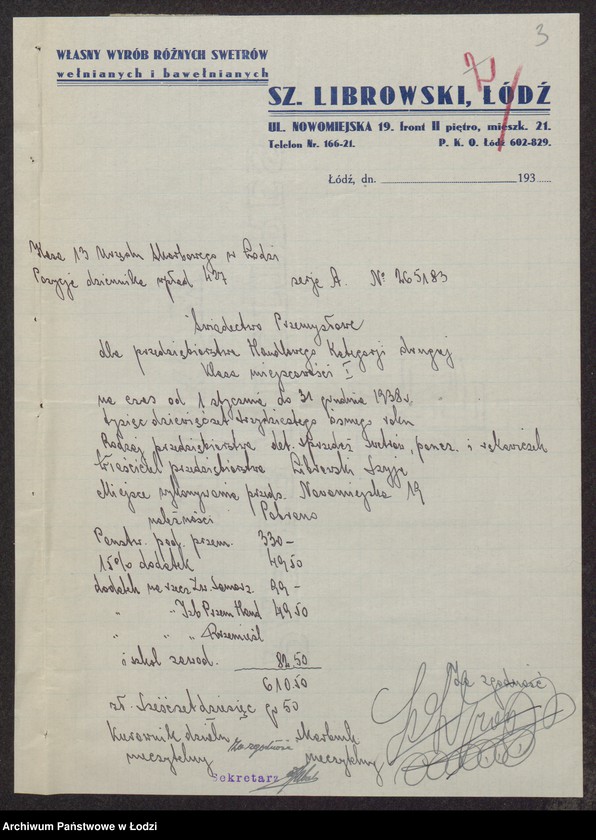 3
WŁASNY WYRÓB RÓŻNYCH SWETRÓW
wełnianych i bawełnianych
SZ. LIBROWSKI, ŁÓDŹ
UL. NOWOMIEJSKA 19. front II piętro, mieszk. 21.
Telefon Nr. 166-21. P. K. O. Łódź 602-829.
Łódź, dn. 193
Kasa 13 Urzędu Skarbowego w Łodzi
Pozycje dziennika wpład 437 serje A. № 265183
Świadectwo Przemysłowe
dla przedsiębiorstwa Handlowego Kategorji drugiej
Klasa miejscowości I
na czas od 1 stycznia do 31 grudnia 1938 r.
tysiąc dziewięćset trzydziestego ósmego roku
Rodzaj przedsiębiorstwa det. sprzedaż swetrów, pończ. i rękawiczek
Właściciel przedsiębiorstwa Librowski Szyja
Miejsce wykonywania przeds. Nowomiejska 19
należności Pobrano
Państw. pod. przem. 330 –
15% dodatek 49 50
dodatek na rzecz Zw. Samorz 99 –
" " Izb Przem Hand 49.50
" " " Rzemieśl
i szkol zawod. 82.50
610.50
zł. Sześćset dziesięć gr 50
Kierownik działu Skarbnik
nieczytelny nieczytelny
Za zgodność
Sekretarz
Za zgodność
Archiwum Państwowe w Łodzi